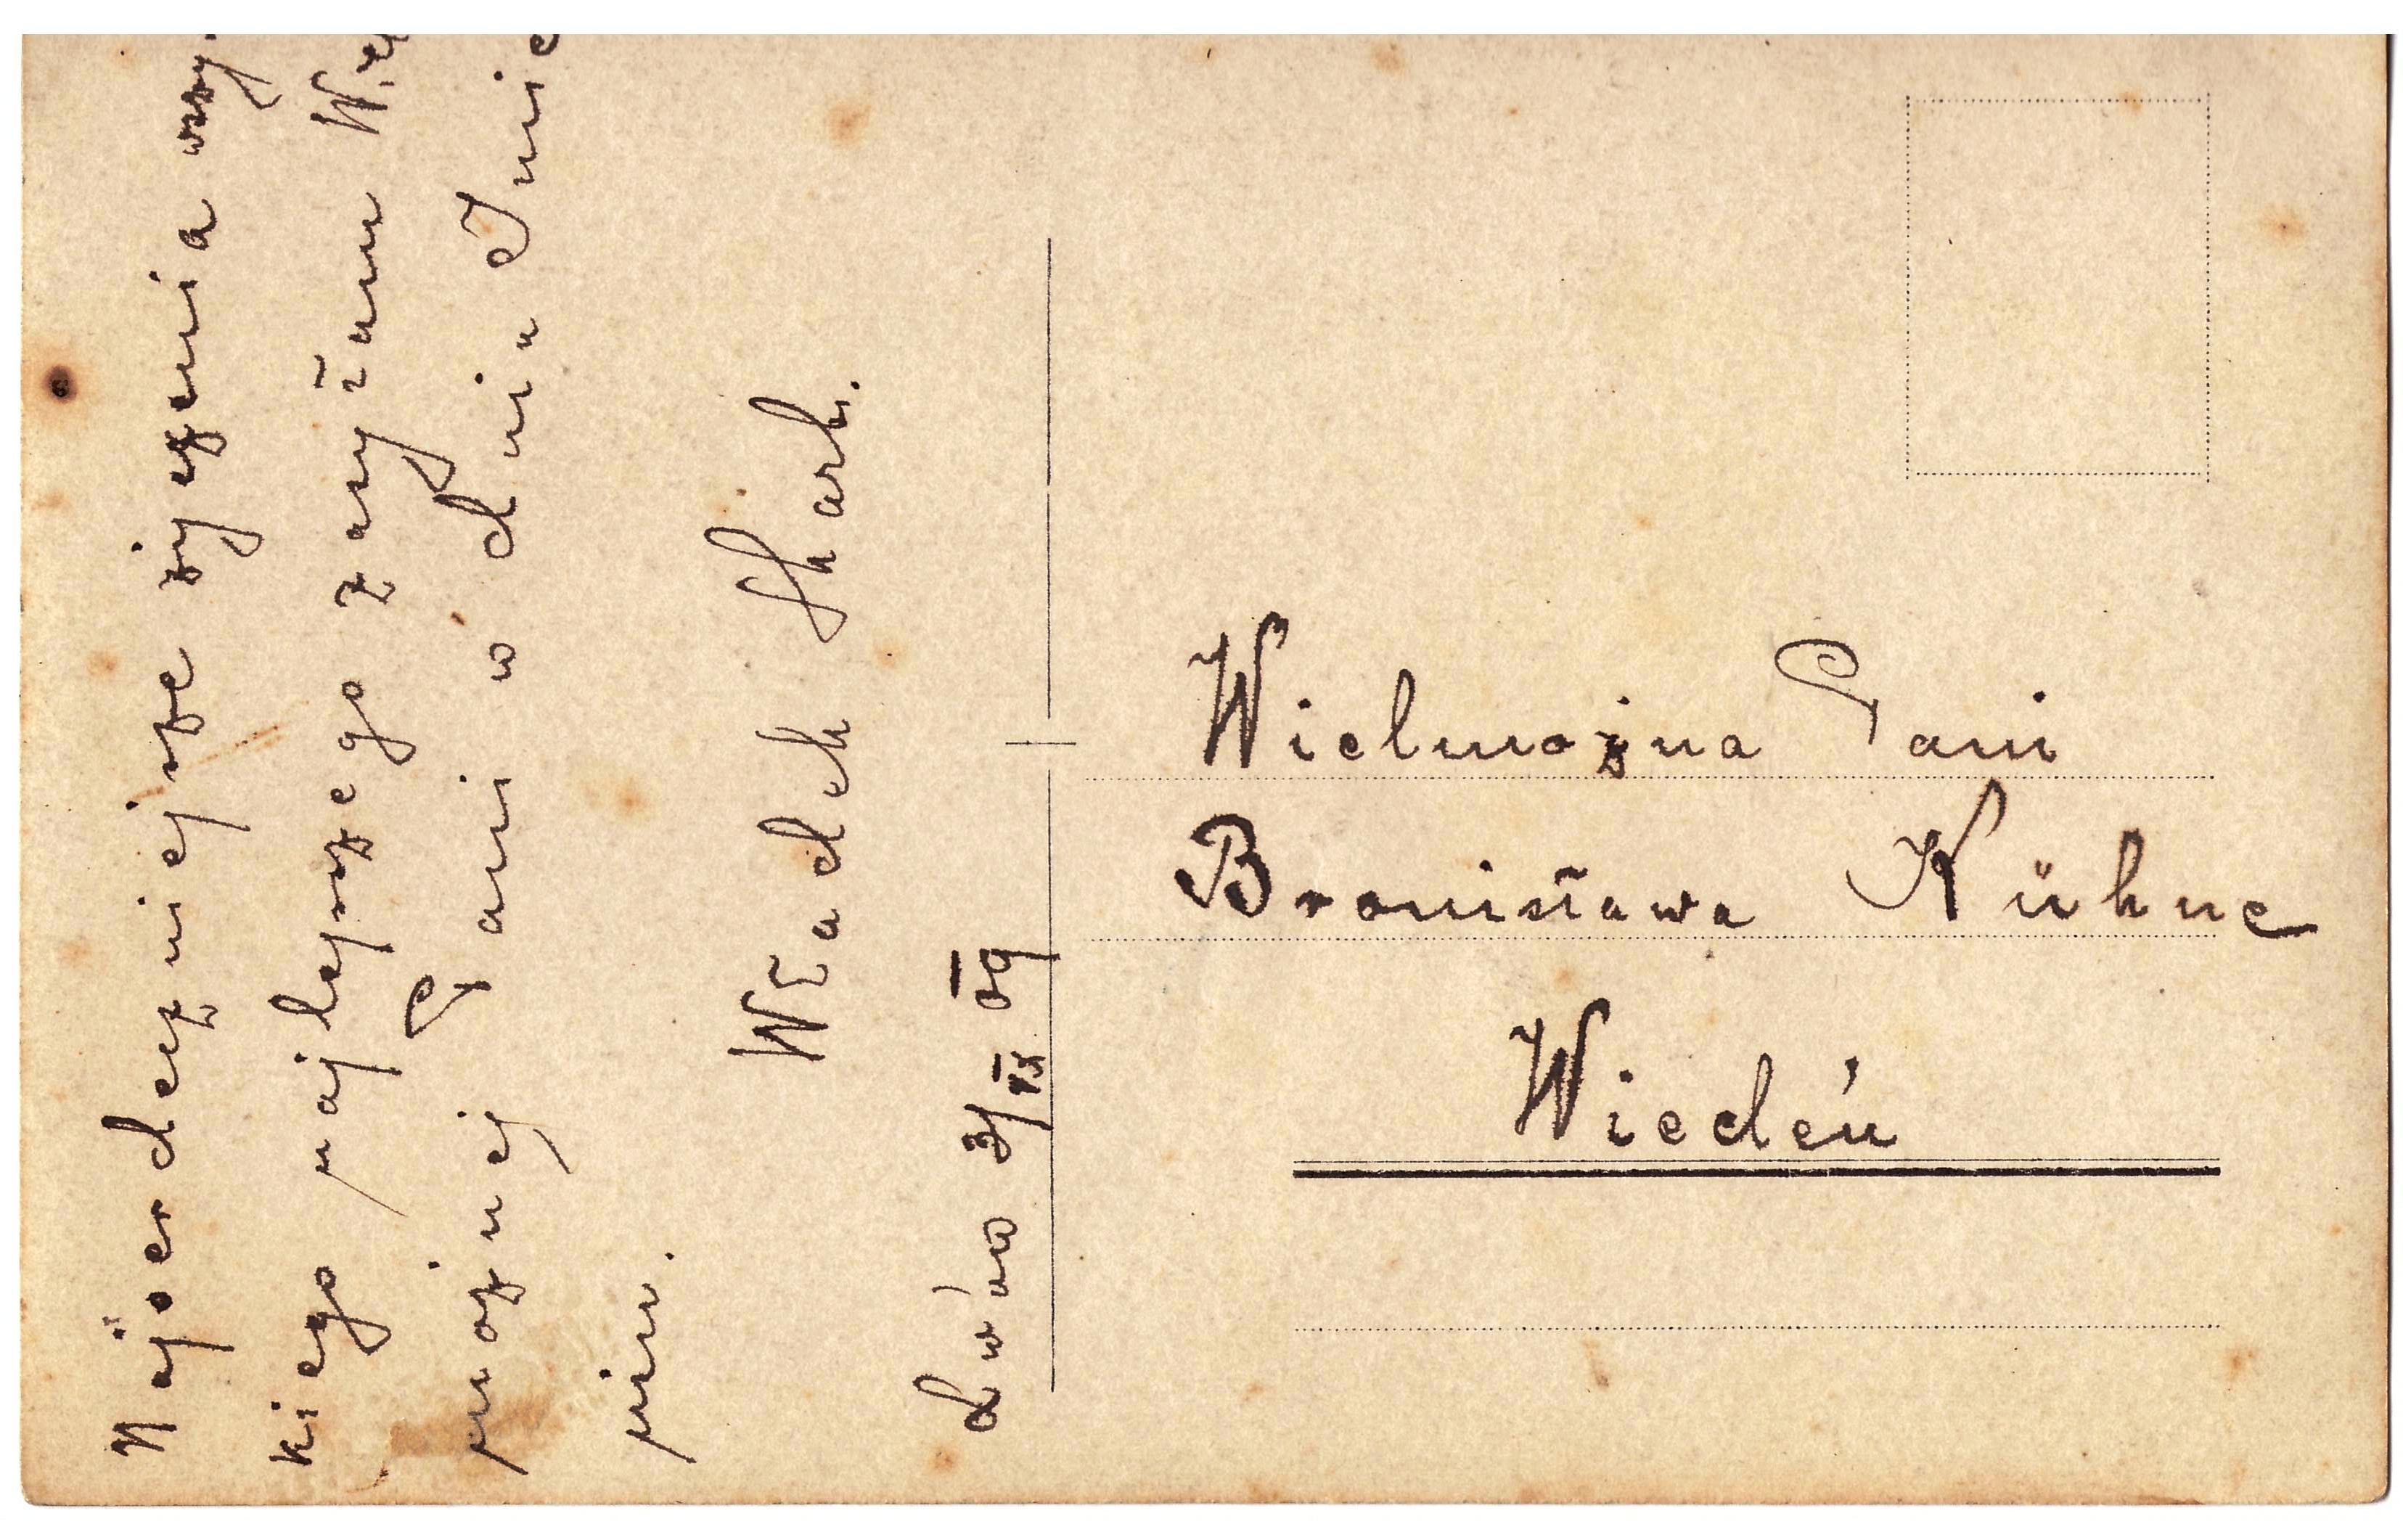 Najserdeczniejsze życzenia wszy-
kiego najlepszego zasyłam Wiel
możnej Pani w dniu Imie
nin.
Władek Skarb.
Lwów 3/IX 09
Wielmożna Pani
Bronisława Kühne
Wiedeń